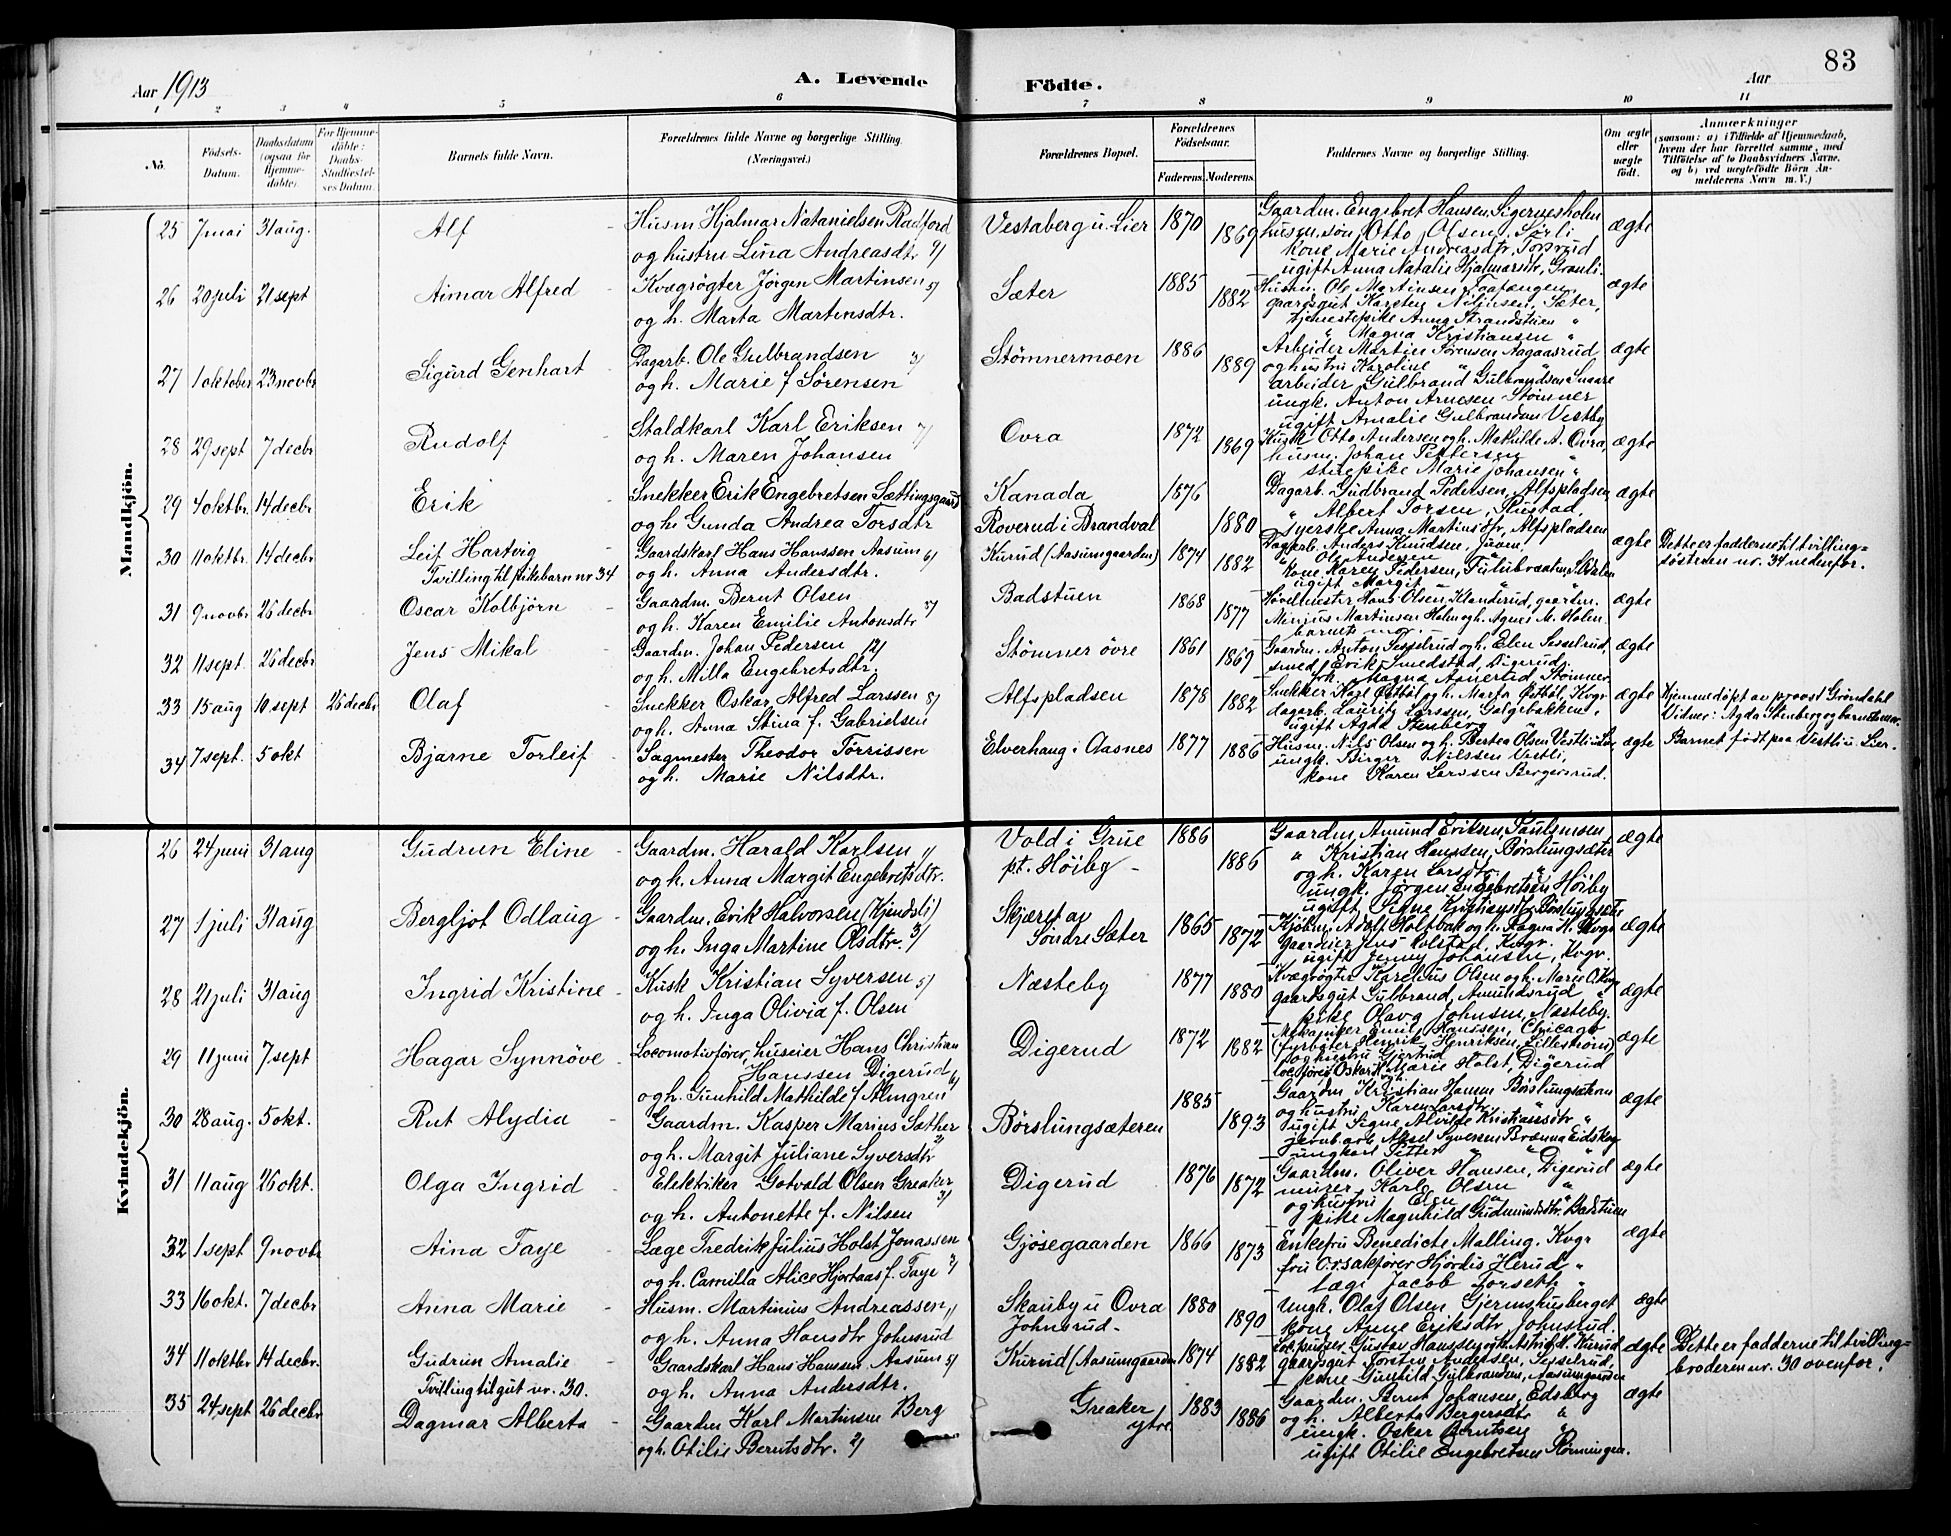 83
Aar 1913
A. Levende
Födte.
Aar
1 2 3 4 5 6 7 8 9 10 11
No.
Födsels-Datum.
Daabsdatum (ogsaa for Hjemme-döbte).
For Hjemme-döbte: Daabs-Stadfæstel-ses Datum.
Barnets fulde Navn.
Forældrenes fulde Navne og borgerlige Stilling. (Næringsvei.)
Forældrenes Bopæl.
Forældrenes Födselsaar.
Faderens. Moderens.
Faddernes Navne og borgerlige Stilling.
Om ægte eller uægte födt.
Anmærkninger
(saasom: a) i Tilfælde af Hjemmedaab, hvem der har forrettet samme, med Tilföielse af to Daabsvidners Navne, og b) ved uægtefödte Börn An-melderens Navn m. V.)
Mandkjön.
25 7 mai 31 aug. Alf
Husm Hjalmar Natanielsen Radford
og hustru Lina Andreasdtr 9/
Vestaberg u. Lier 1870 1869
Gaardm. Engebret Hansen, Sigernesholm
husm. søn Otto Olsen, Sørli
kone Marie Andreasdtr, Toprud
ugift Anna Natalie Hjalmarsdtr, Granli
ægte
26 20 juli 21 sept Aimar Alfred
Kvægrøgter Jörgen Martinsen 5/
og h. Marta Martinsdtr.
Sæter 1885 1882
Husm. Ole Martinsen
gaardsgut Karsten Nilsen, Sæter,
tjenestepike Anna Strandstuen "
" Magna Kristiansen "
ægte
27 1 oktober 23 novbr Sigurd Genhart
Dagarb. Ole Gulbrandsen 3/
og h. Marie f Sörensen
Stømnermoen 1886 1889
Arbeider Martin Sörensen Aagaasrud
og hustru Karoline " "
arbeider Gulbrand Gulbrandsen Snaare
ungk. Anton Arnesen Stömner
ugift Amalie Gulbrandsen Vestby
ægte
28 29 sept 7 decbr Rudolf
Staldkarl Karl Eriksen 7/
og h. Maren Johansen
Ovra 1872 1869
Kusk Otto Andersen og h. Mathilde A. Ovra,
husm. Johan Pettersen "
pike Marie Johansen "
ægte
29 4 oktbr. 14 decbr Erik
Snekker Erik Engebretsen Sætlingsgaard
og h. Gunda Andrea Torsdtr
Kanada
Roverud i Brandval 1876 1880
Dagarb. Gudbrand Pedersen, Alfspladsen
" Albert Torsen, Rustad,
syerske Anna Martinsdtr, Alfspladsen
ægte
30 11 oktbr. 14 decbr. Leif Hartvig
Tvilling til pikebarn nr. 34
Gaardskarl Hans Hanssen Aasum 6/
og h. Anna Andersdtr.
Kurud (Aasumgaarden) 1874 1882
Dagarb. Anders Knudsen, Juven,
" Ole Andersen "
kone Karen Pedersen,
ugift Margit "
ægte
Dette er fadderne til tvilling-
søstren nr. 34 nedenfor.
31 9 novbr 26 decbr Oscar Kolbjörn
Gaardm. Bernt Olsen
og h. Karen Emilie Antonsdtr 3/
Badstuen 1868 1877
Høvelmester Hans Olsen, Klanderud, gaardm.
Minius Martinsen Holm og h. Agnes M. Holm
barnets mor.
ægte
32 11 sept. 26 decbr Jens Mikal
Gaardm. Johan Pedersen 12/
og h. Milla Engebretsdtr.
Stömner övre 1861 1869
Gaardm. Anton Sesselrud og h. Elen Sesselrud,
smed Erik Smedstad, Digerud,
frk. Magna Asnerud Stömner
ægte
33 15 aug 10 sept 26 decbr Olaf
Snekker Oskar Alfred Larssen 8/
og h. Anna Stina f. Gabrielsen
Alfspladsen 1878 1882
Snekker Karl Østbøl og h. Marta Østbøl, Kvgr
dagarb. Lauritz Larssen, Galgebakken,
ugift Agda Stenberg "
ægte
Hjemmedöpt av provst Gröndahl
Vidner: Agda Stenberg og barnets mor.
34 7 sept. 5 okt Bjarne Torleif
Sagmester Theodor Torrissen
og h. Marie Nilsdtr.
Elverhaug i Aasnes 1877 1886
Husm. Nils Olsen og h. Bertea Olsen Vestli u. Lier
ungk. Birger Nilssen Vestli,
kone Karen Larssen Bergersrud.
ægte
Barnet född paa Vestli u. Lier.
Kvindekjön.
26 24 juni 31 aug Gudrun Eline
Gaardm. Harald Karlsen 1/
og h. Anna Margit Engebretsdtr.
Vold i Grue
pt. Höiby 1886 1886
Gaardm. Amund Eriksen, Paulsmoen
" Kristian Hanssen, Børslungsæter
og h. Karen Larsdtr. "
Ungk. Jörgen Engebretsen Höiby
ugift Signe Kristiansdtr Børslungsæter
ægte
27 1 juli 31 aug Bergljot Odlaug
Gaardm. Erik Halvorsen (Kjendsli)
og h. Inga Martine Olsdtr. 3/
Skjæret av
Søndre Sæter 1865 1872
Kjöbm. Adolf Holtbak og h. Ragna H. Kvgr
Gaardeier Jens Holstad, Kvgr.
ugift Jenny Johansen, Kvgr.
ægte
28 21 juli 31 aug Ingrid Kristine
Kusk Kristian Syversen 5/
og h. Inga Olivia f. Olsen
Næsteby 1877 1880
Kvægrøgter Karelius Olsen og h. Marie O.
gaardsgut Gulbrand Amundsrud "
pike Olava Johnsen, Næsteby.
ægte
29 11 juni 7 sept Hagar Synnöve
Locomotivförer, huseier Hans Christian
Hanssen Digerud 6/
og h. Gunhild Mathilde f. Almgren
Digerud 1872 1882
Mekaniker Emil Hanssen, Chicago
(fyrböter Henrik Henriksen, Lilleström)
og hustru Gjertrud "
locförer Oskar og Marie Holst, Digerud
ægte
30 28 aug. 5 okt. Rut Alydia
Gaardm. Kasper Marius Sæther 2/
og h. Margit Juliane Syversdtr
Börslungsæteren 1885 1893
Gaardm Kristian Hansen Börslungsætran
og hustru Karen Larsdtr "
ugift Signe Alvilde Kristiansdtr "
jernbarb Aksel Syversen Brænna Eidskog
ungkarl Petter " "
ægte
31 11 aug 26 okt. Olga Ingrid
Elektriker Gotvald Olsen Greaker 3/
og h. Antonette f. Nilsen
Digerud 1876 1872
Gaardm. Oliver Hansen, Digerud
murer Karl Olsen "
og hustru Elen "
pike Magnhild Gudmundsdtr Badstuen
ægte
32 1 sept 9 novbr Aina Faye
Læge Fredrik Julius Holst Jonassen
og h. Camilla Alice Hjortaas f. Faye 3/
Gjøsegaarden 1866 1873
Enkefru Benedicte Malling, Kvgr
fru O.r.sakfører Hjördis Herud, "
læge Jacob Forseth "
ægte
33 16 okt. 7 decbr Anna Marie
Husm. Martinius Andreassen, 1/
og h. Anna Hansdtr Johnsrud
Skauby u Ovra
Johnsrud 1880 1890
Ungk. Olaf Olsen Gjermshusberget
kone Anne Eriksdtr Johnsrud.
ægte
34 11 oktbr 14 decbr. Gudrun Amalie
Tvilling til gut nr. 30.
Gaardskarl Hans Hanssen Aasum 5/
og h. Anna Andersdtr.
Kurud (Aasumgaarden 1874 1882
Lokpudser Gustav Hanssen og h. Astrid H. Kurud
gaardsgut Torsten Andersen, Sesselrud,
kone Gunhild Gulbrandsen, Aasumgaarden
ægte
Dette er fadderne til tvilling-
broderen nr. 30 ovenfor.
35 24 sept 26 decbr Dagmar Alberta
Gaardm Karl Martinsen Berg
og h. Otilie Berntsdtr. 2/
Greaker
ytre 1883 1886
Gaardm. Bernt Johansen, Edsberg
og h. Alberta Bergersdtr "
ungk. Oskar Berntsen "
ugift Otilie Engebretsen Rönningen.
ægte